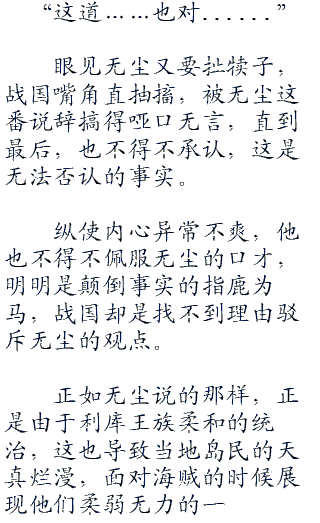 “这道……也对......”
眼见无尘又要扯犊子，
战国嘴角直抽搐，被无尘这
番说辞搞得哑口无言，直到
最后，也不得不承认，这是
无法否认的事实。
纵使内心异常不爽，他
也不得不佩服无尘的口才，
明明是颠倒事实的指鹿为
马，战国却是找不到理由驳
斥无尘的观点。
正如无尘说的那样，正
是由于利库王族柔和的统
治，这也导致当地岛民的天
真烂漫，面对海贼的时候展
现他们柔弱无力的一